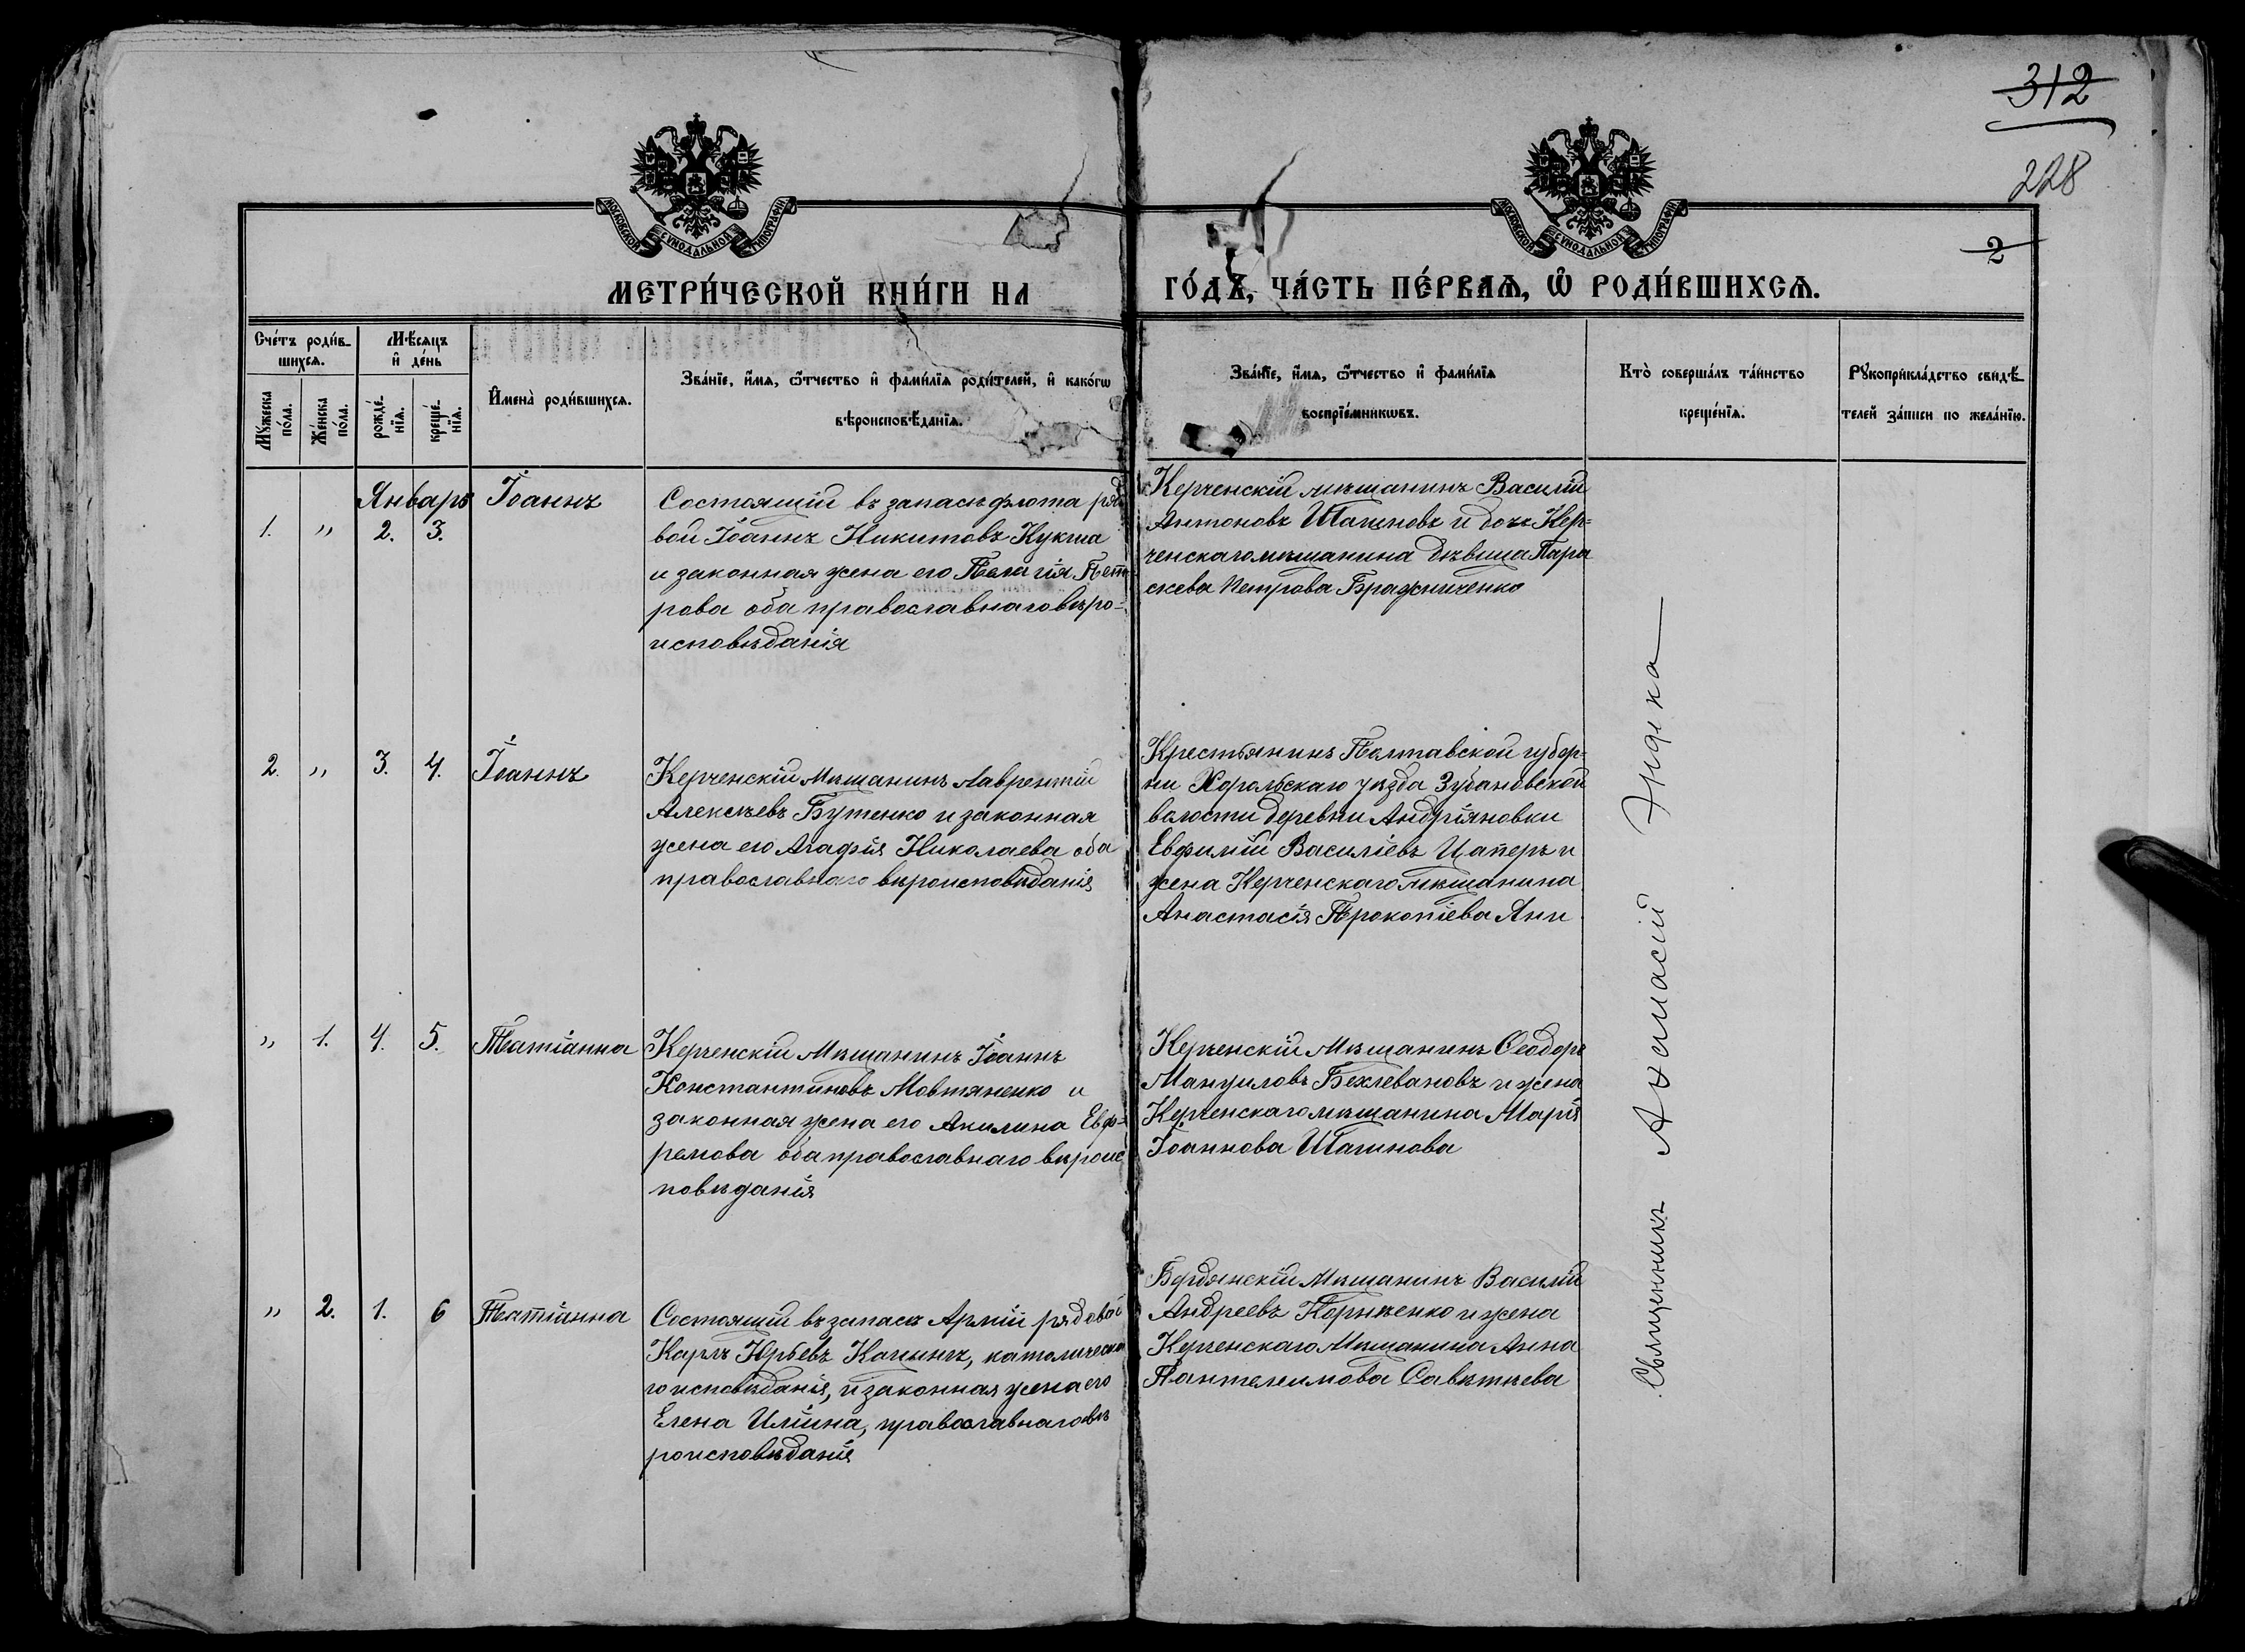 312
228
2
МОСКОВСКОЙ СѴНОДАЛЬНОЙ ТИПОГРАФІИ
МОСКОВСКОЙ СѴНОДАЛЬНОЙ ТИПОГРАФІИ
МЕТРИ́ЧЕСКОЙ КНИ́ГИ НА
ГО́ДЪ, ЧА́СТЬ ПЕ́РВАѦ, Ѡ҆ РОДИ́ВШИХСѦ.
Сче́тъ роди́в-
шихсѧ.
Мꙋ́жеска по́ла.
Же́нска по́ла.
Мѣ́сѧцъ
и҆ де́нь
рожде́-
нїѧ.
креще́-
нїѧ.
И҆мена̀ роди́вшихсѧ.
Зва́нїе, и҆́мѧ, ѻ҆́тчество и҆ фами́лїѧ роди́телей, и҆ како́гѡ
вѣроисповѣ́данїѧ.
Зва́нїе, и҆́мѧ, ѻ҆́тчество и҆ фами́лїѧ
воспрїе́мникѡвъ.
Кто̀ соверша́лъ та́инство
креще́нїѧ.
Рꙋкоприкла́дство свидѣ́-
телей за́писи по жела́нїю.
Январь
1. " 2. 3.
Іоаннъ
Состоящій въ запасѣ флота рядо
вой Іоаннъ Никитовъ Кукша
и законная жена его Пелагія Пет-
рова оба православнаго вѣро-
исповѣданія
Керченскій мѣщанинъ Василій
Антоновъ Шагиновъ и дочь Кер-
ченскаго мѣщанина дѣвица Пара
скева Петрова Бражниченко
2. " 3. 4.
Іоаннъ
Керченскій Мѣщанинъ Лаврентій
Алексѣевъ Бутенко и законная
жена его Агафія Николаева оба
православнаго вѣроисповѣданія
Крестьянинъ Полтавской губер-
ни Хорольскаго уѣзда Зубановской
волости деревни Андріяновки
Евфимій Василіевъ Цаперъ и
жена Керченскаго мѣщанина
Анастасія Прокопіева Ани
" 1. 4. 5.
Татіанна
Керченскій Мѣщанинъ Іоаннъ
Константиновъ Мовтяненко и
законная жена его Акилина Евф-
ремова оба православнаго вѣроис
повѣданія
Керченскій Мѣщанинъ Ѳеодоръ
Мануиловъ Бехлевановъ и жена
Керченскаго мѣщанина Марія
Іоаннова Шагинова
" 2. 1. 6
Татіанна
Состоящій въ запасѣ Арміи рядовой
Карлъ Юрьевъ Кацынъ, католическа
го исповѣданія, и законная жена его
Елена Иліина, православнаго вѣ
роисповѣданія
Бердянскій Мѣщанинъ Василій
Андреевъ Корниенко и жена
Керченскаго Мѣщанина Анна
Пантелеимова Савѣтьева
Священникъ